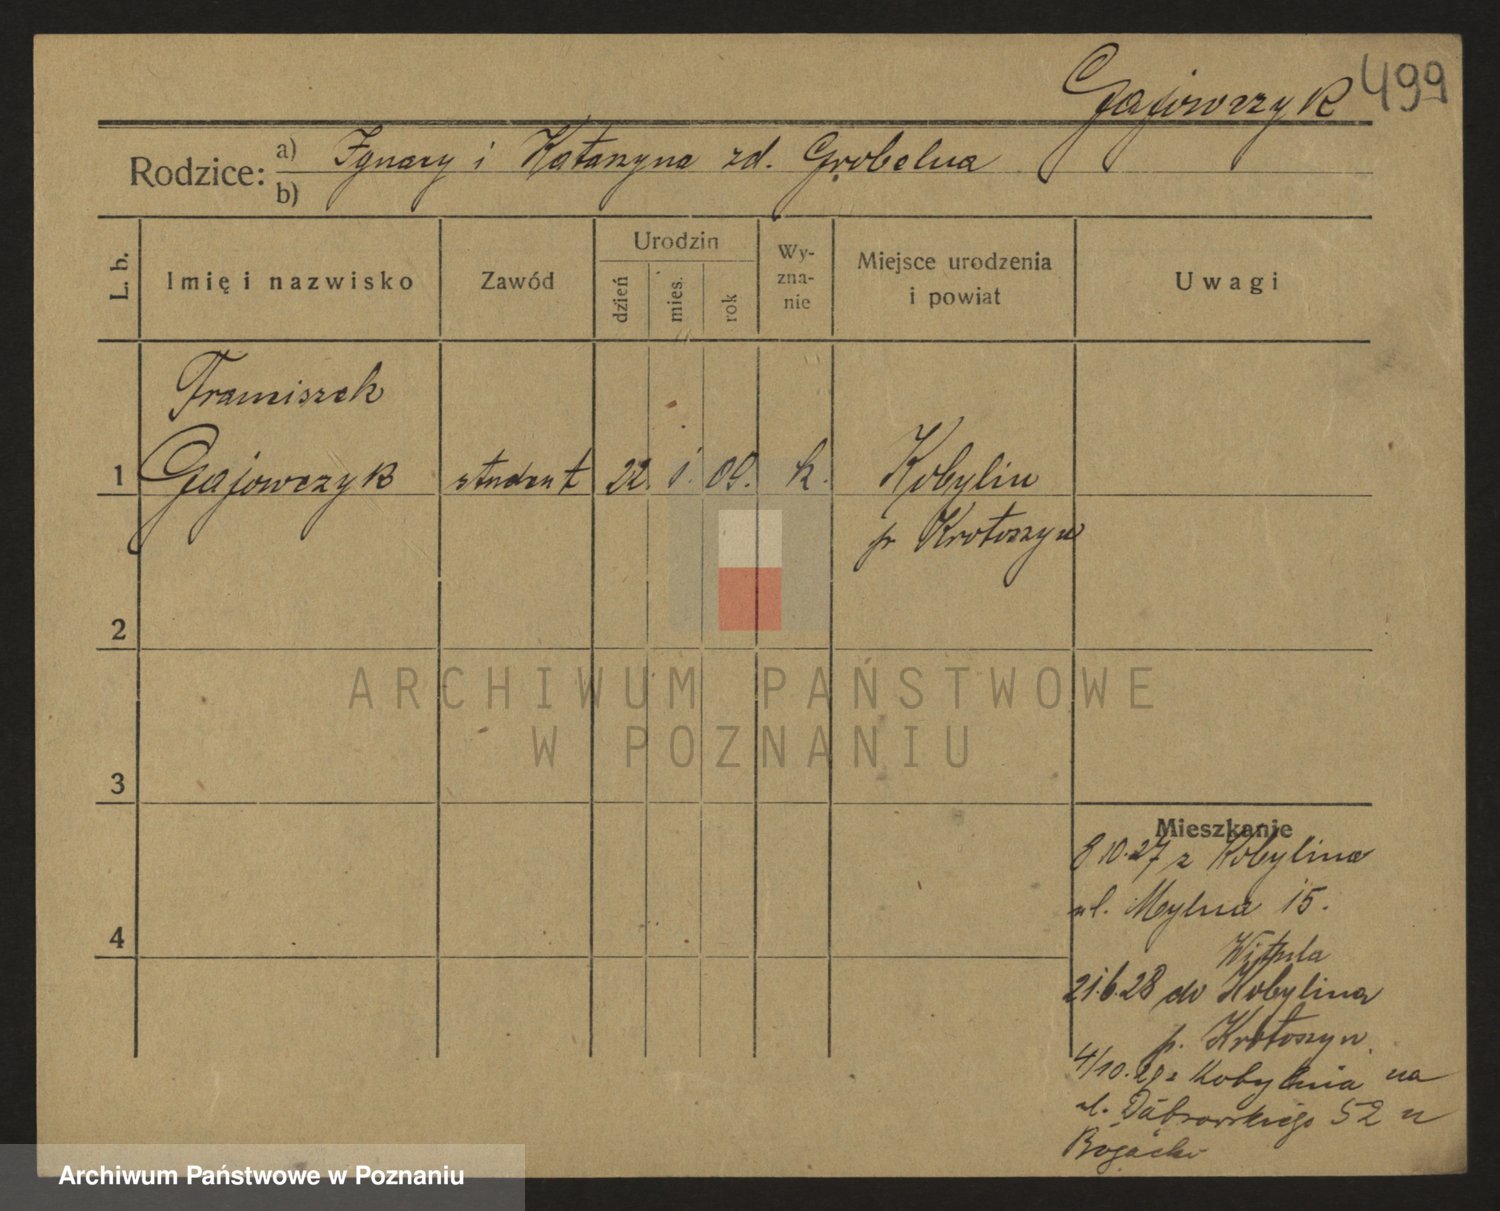 Gajowczyk 499
Rodzice: a) Ignacy i Katarzyna zd. Grobelna
b)
L. b. Imię i nazwisko Zawód Urodzin dzień mies. rok Wyznanie Miejsce urodzenia i powiat Uwagi
Franciszek
1 Gajowczyk student 22. 1. 09. k. Kobylin
p Krotoszyn
2
ARCHIWUM PAŃSTWOWE
W POZNANIU
3
Mieszkanie
8.10.27 z Kobylina
ul. Mylna 15.
4
21.6.28 do Kobylina
p. Krotoszyn
4/10.29 z Kobylina na
ul. Dąbrowskiego 52 u
Archiwum Państwowe w Poznaniu